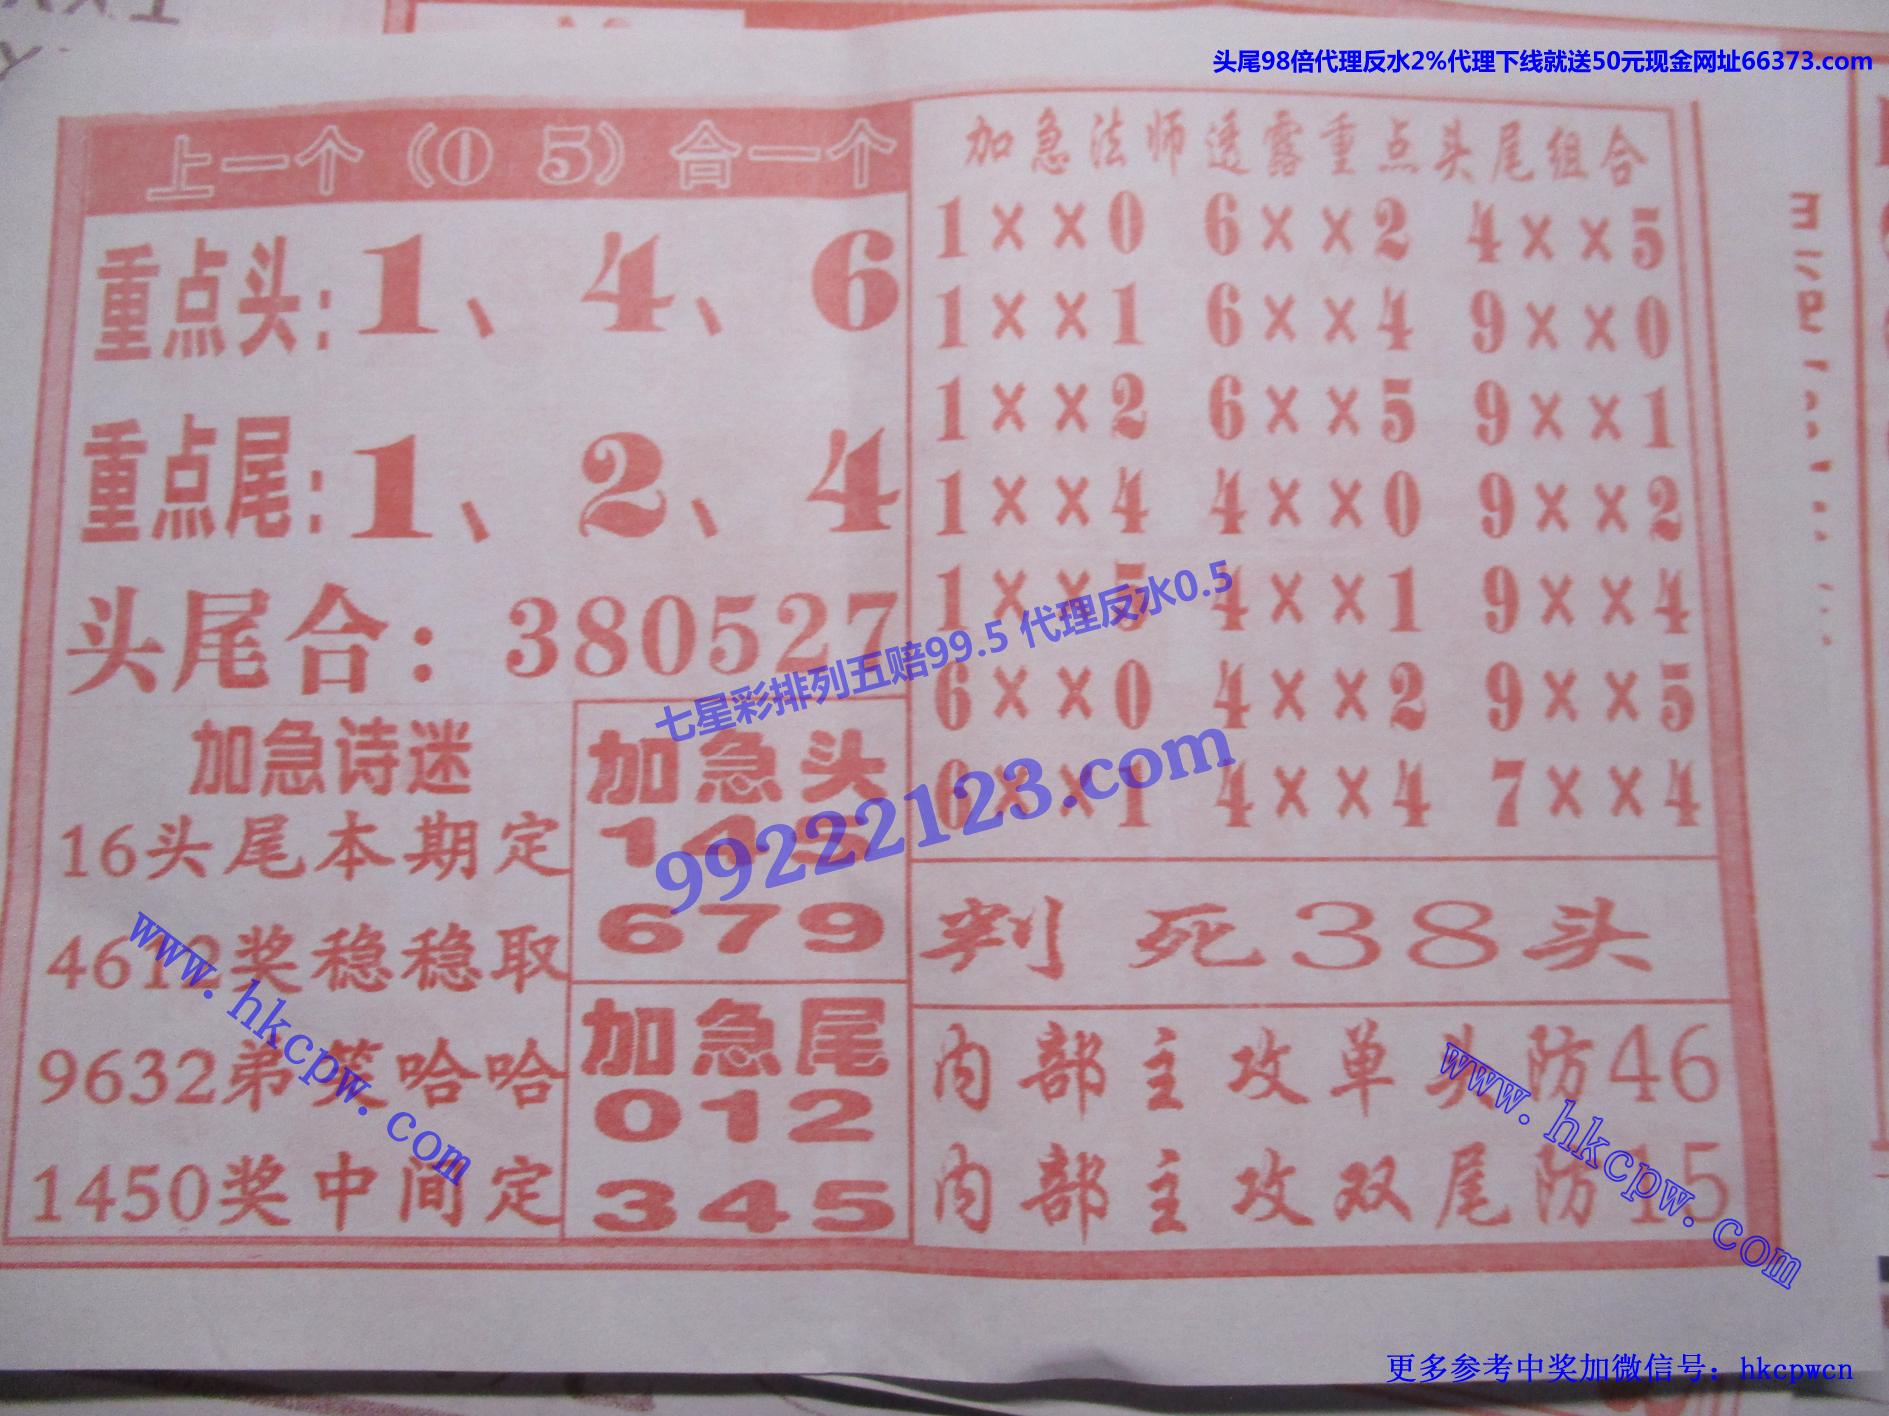 头尾98倍代理反水2%代理下线就送50元现金网址66373.com
上一个（0 5）合一个
重点头:1、4、6
重点尾:1、2、4
头尾合:380527
加急诗迷
16头尾本期定
4612奖稳稳取
9632弟笑哈哈
1450奖中间定
加急头
145
679
加急尾
012
345
加急法师透露重点头尾组合
1××0 6××2 4××5
1××1 6××4 9××0
1××2 6××5 9××1
1××4 4××0 9××2
1××5 4××1 9××4
6××0 4××2 9××5
6××1 4××4 7××4
判死38头
内部主攻单头防46
内部主攻双尾防15
七星彩排列五赔99.5 代理反水0.5
99222123.com
www.hkcpw.com
www.hkcpw.com
更多参考中奖加微信号：hkcpwcn